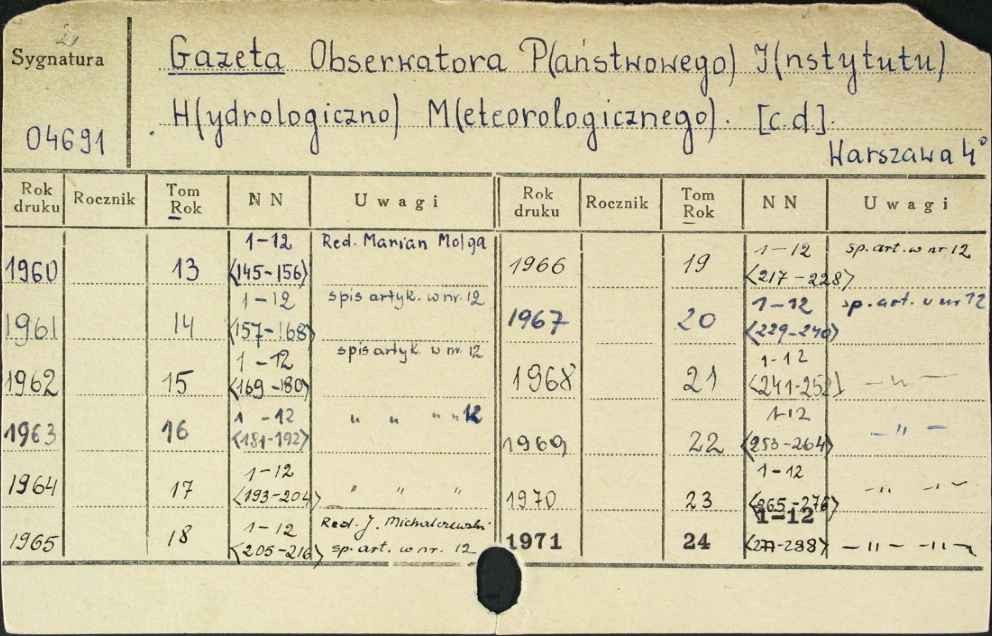 Sygnatura
04691
Gazeta Obserwatora P(aństwowego) I(nstytutu)
H(ydrologiczno) M(eteorologicznego). [c.d.].
Warszawa 4°
Rok druku Rocznik Tom Rok NN Uwagi Rok druku Rocznik Tom Rok NN Uwagi
1960 13 1-12 <145-156> Red. Marian Molga
1961 14 1-12 <157-168> spis artyk. w nr. 12
1962 15 1-12 <169-180> spis artyk w nr. 12
1963 16 1-12 <181-192> " " " " 12
1964 17 1-12 <193-204> " " "
1965 18 1-12 <205-216> Red. J. Michalczewski sp. art. w nr. 12
1966 19 1-12 <217-228> sp. art. w nr 12
1967 20 1-12 <229-240> sp. art. w nr 12
1968 21 1-12 <241-252> -"-
1969 22 1-12 <253-264> -"-
1970 23 1-12 <265-276> -"- -"-
1971 24 1-12 -"- -"-